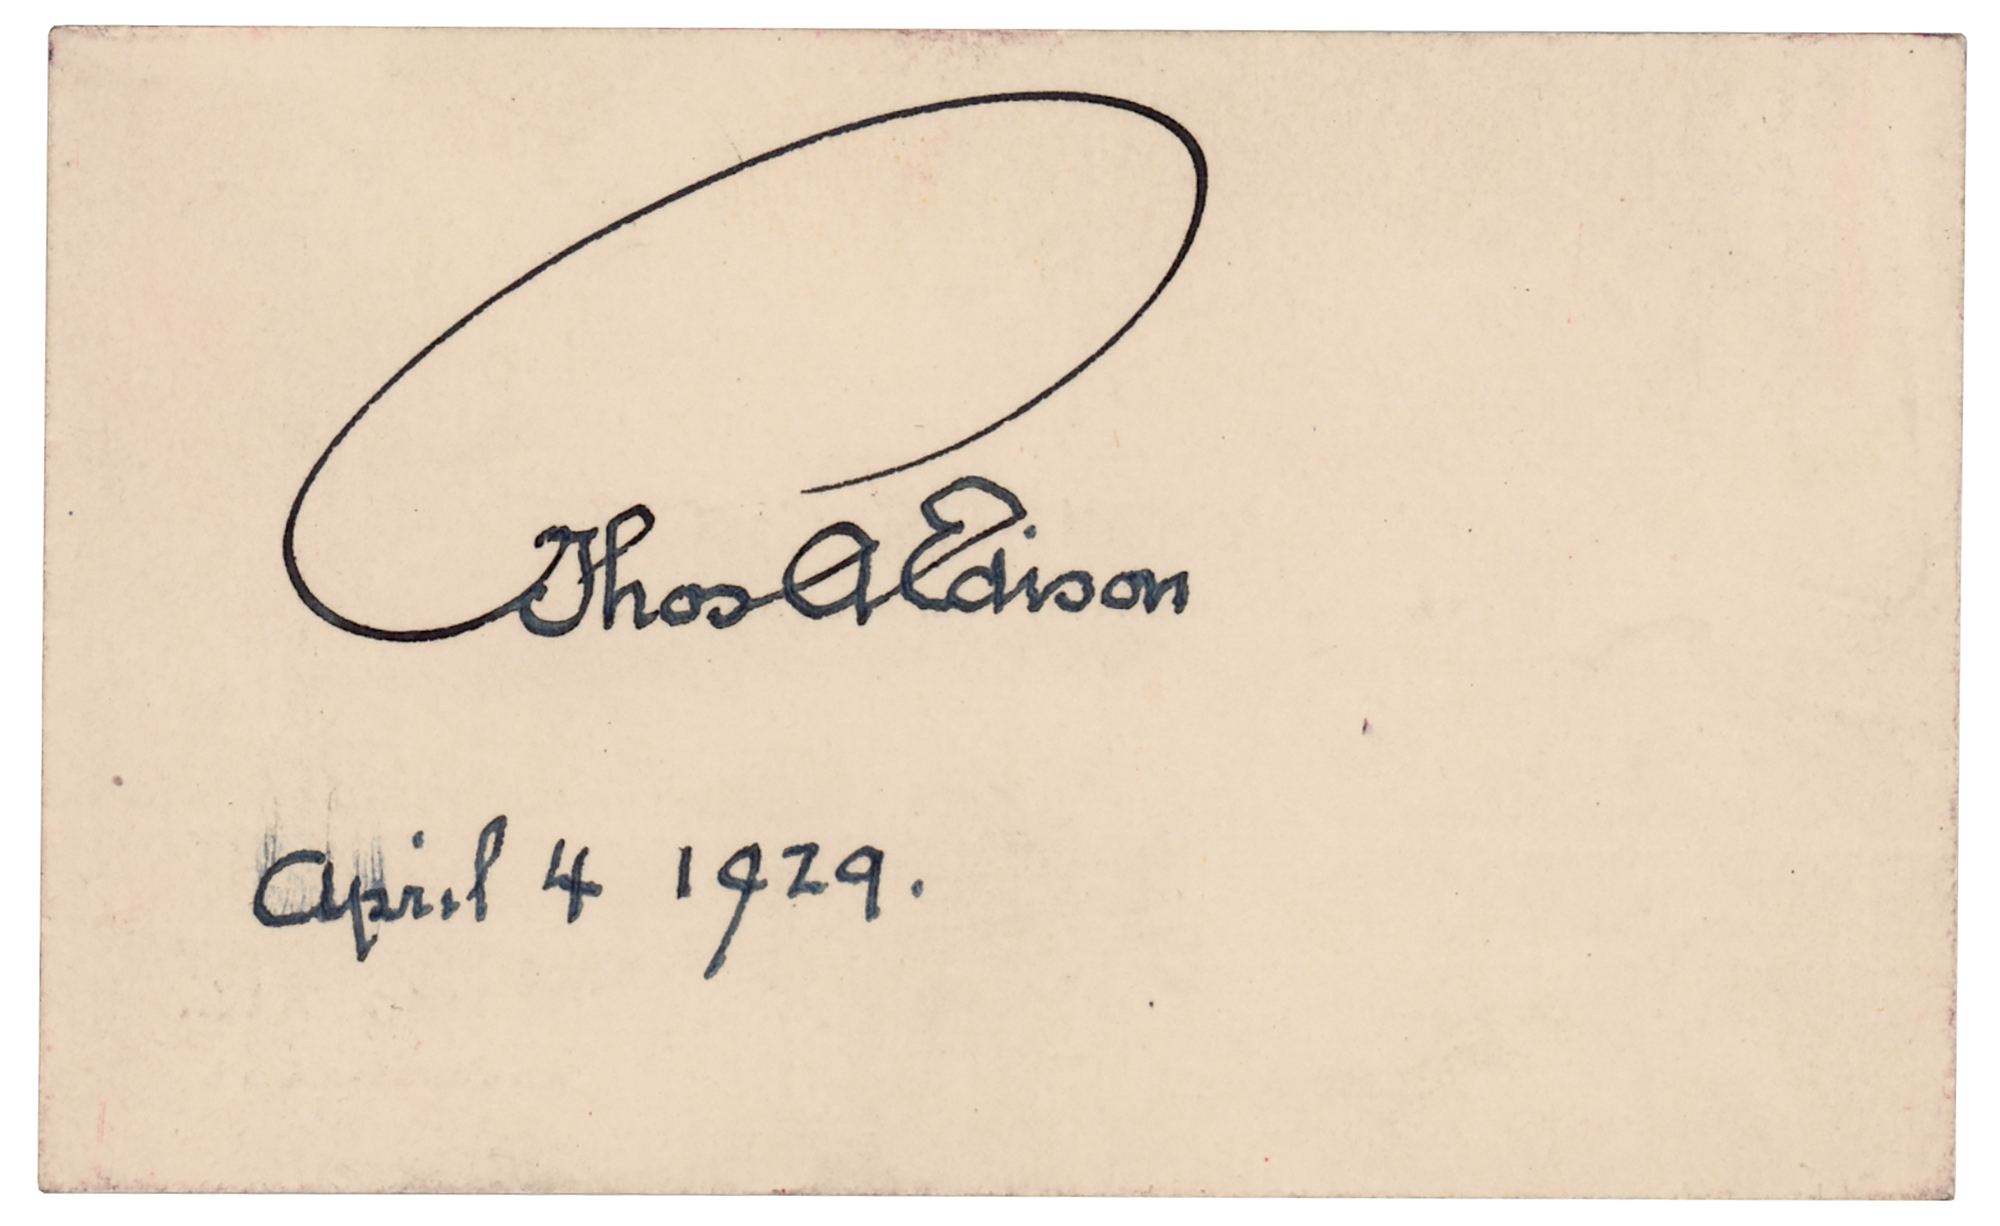 Thos A Edison
April 4 1929.